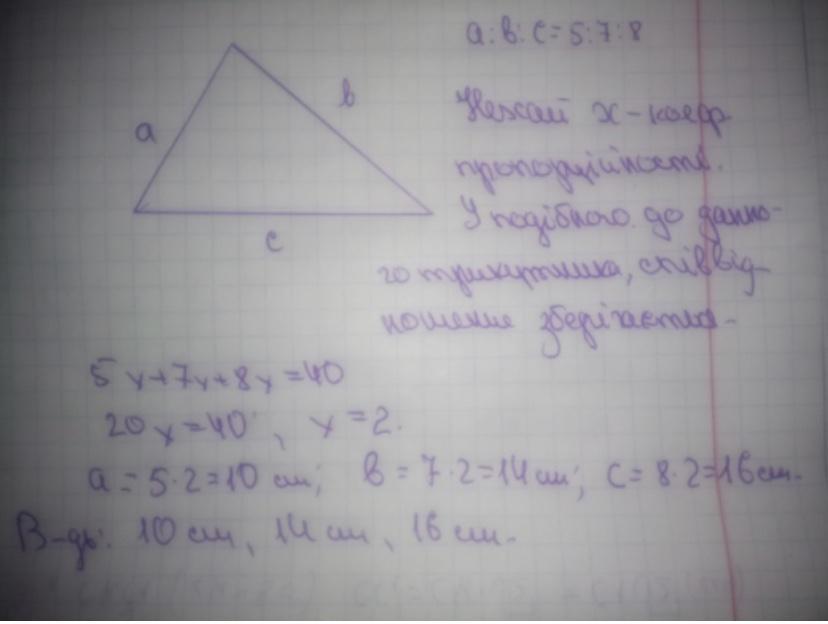 a : b : c = 5 : 7 : 8
a
b
c
Нехай x - коеф.
пропорційності.
У подібного до данно-
го трикутника, співвід-
ношення зберігається.
5x+7x+8x=40
20x=40, x=2.
a = 5·2=10 см; b = 7·2=14 см; c = 8·2=16 см.
В-дь: 10 см, 14 см, 16 см.